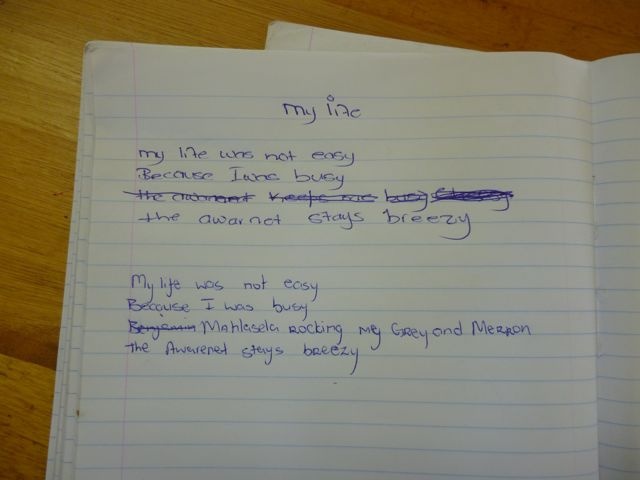 my life
my life was not easy
Because I was busy
the awarnet keeps me busy
the awarnet stays breezy
My life was not easy
Because I was busy
Benjamin Mahlasela Rocking my Grey and Merron
the Awarenet stays breezy